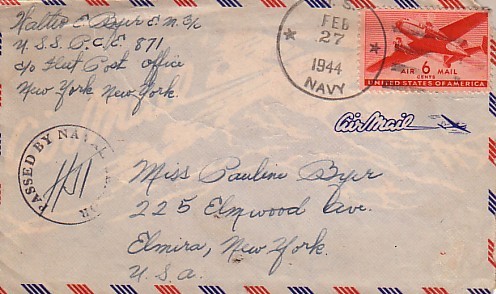 Walter E. Byer E.M. 3/c
U.S.S. P.C.E. 871
c/o Fleet Post Office
New York New York.
U.S.
FEB
27
1944
NAVY
AIR 6 MAIL
CENTS
UNITED STATES OF AMERICA
Air Mail
PASSED BY NAVAL CENSOR
Miss Pauline Byer
225 Elmwood Ave.
Elmira, New York.
U.S.A.